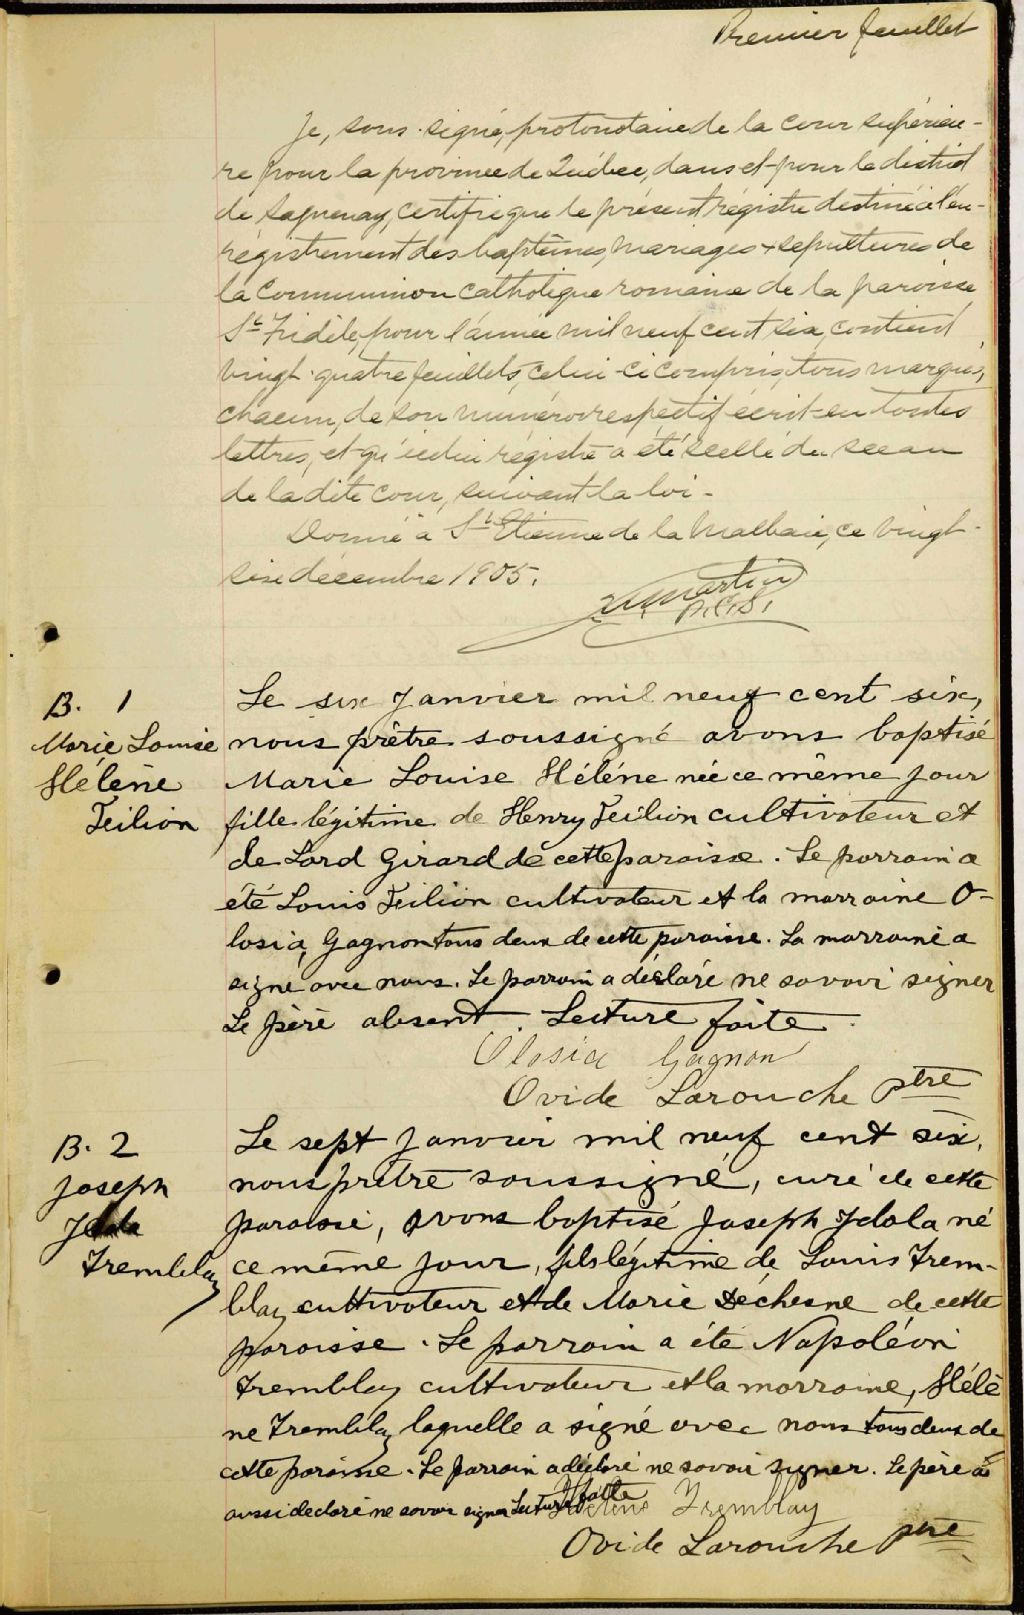 Premier feuillet
Je, sous-signé, protonotaire de la cour supérieu-
re pour la province de Québec, dans et pour le district
de Saguenay, certifie que le présent régistre destiné à l'en-
régistrement des baptêmes, mariages & sepultures de
la Communion catholique romaine de la paroisse
St Fidèle, pour l'année mil neuf cent six, contient
vingt-quatre feuillets, celui-ci compris, tous marqués,
chacun, de son numéro respectif écrit en toutes
lettres, et qu'icelui régistre a été scellé du sceau
de la dite cour, suivant la loi -
Donné à St Etienne de la Malbaie, ce vingt-
six décembre 1905.
Martin
P.C.S.
B. 1
Marie Louise
Hélène
Feilion
Le six Janvier mil neuf cent six,
nous prêtre soussigné avons baptisé
Marie Louise Héléne née ce même jour
fille légitime de Henry Feilion cultivateur et
de Lord Girard de cette paroisse. Le parrain a
été Louis Feilion cultivateur et la marraine O-
losia Gagnon tous deux de cette paroisse. La marraine a
signé avec nous. Le parrain a déclaré ne savoir signer
Le père absent. Lecture faite.
Olosia Gagnon
Ovide Larouche ptre
B. 2
Joseph
Tremblay
Le sept Janvier mil neuf cent six,
nous prêtre soussigné, curé de cette
paroisse, avons baptisé Joseph Idola né
ce même jour, fils légitime de Louis Trem-
blay cultivateur et de Marie Déchesne de cette
paroisse. Le parrain a été Napoléon
Tremblay cultivateur et la marraine, Hélè
ne Tremblay laquelle a signé avec nous tous deux de
cette paroisse. Le parrain a déclaré ne savoir signer. Le père a
aussi declaré ne savoir signer Lecture faite
Hélène Tremblay
Ovide Larouche ptre